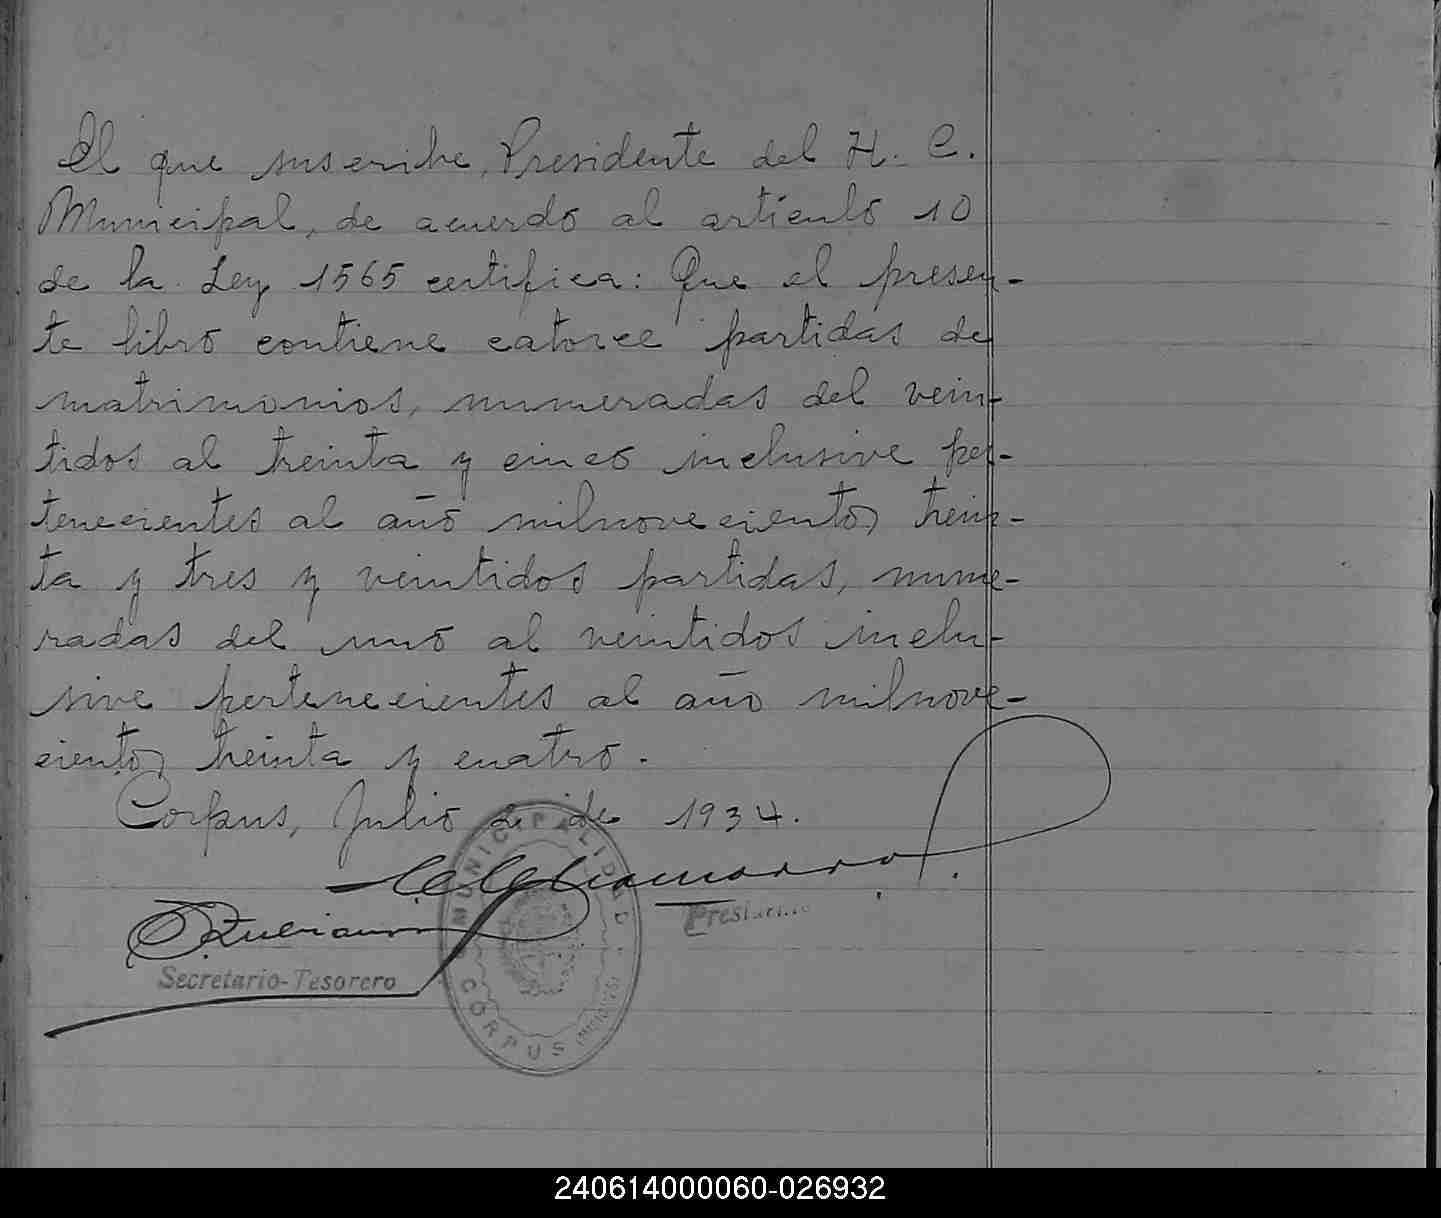 El que suscribe, Presidente del H. C.
Municipal, de acuerdo al artículo 10
de la Ley 1565 certifica: Que el presen-
te libro contiene catorce partidas de
matrimonios, numeradas del vein-
tidos al treinta y cinco inclusive per-
tenecientes al año milnovecientos trein-
ta y tres y veintidos partidas, nume-
radas del uno al veintidos inclu-
sive pertenecientes al año milnove-
cientos treinta y cuatro.
Corpus, Julio 2 de 1934.
Presidente
Secretario-Tesorero
MUNICIPALIDAD
CORPUS
(MISIONES)
240614000060-026932